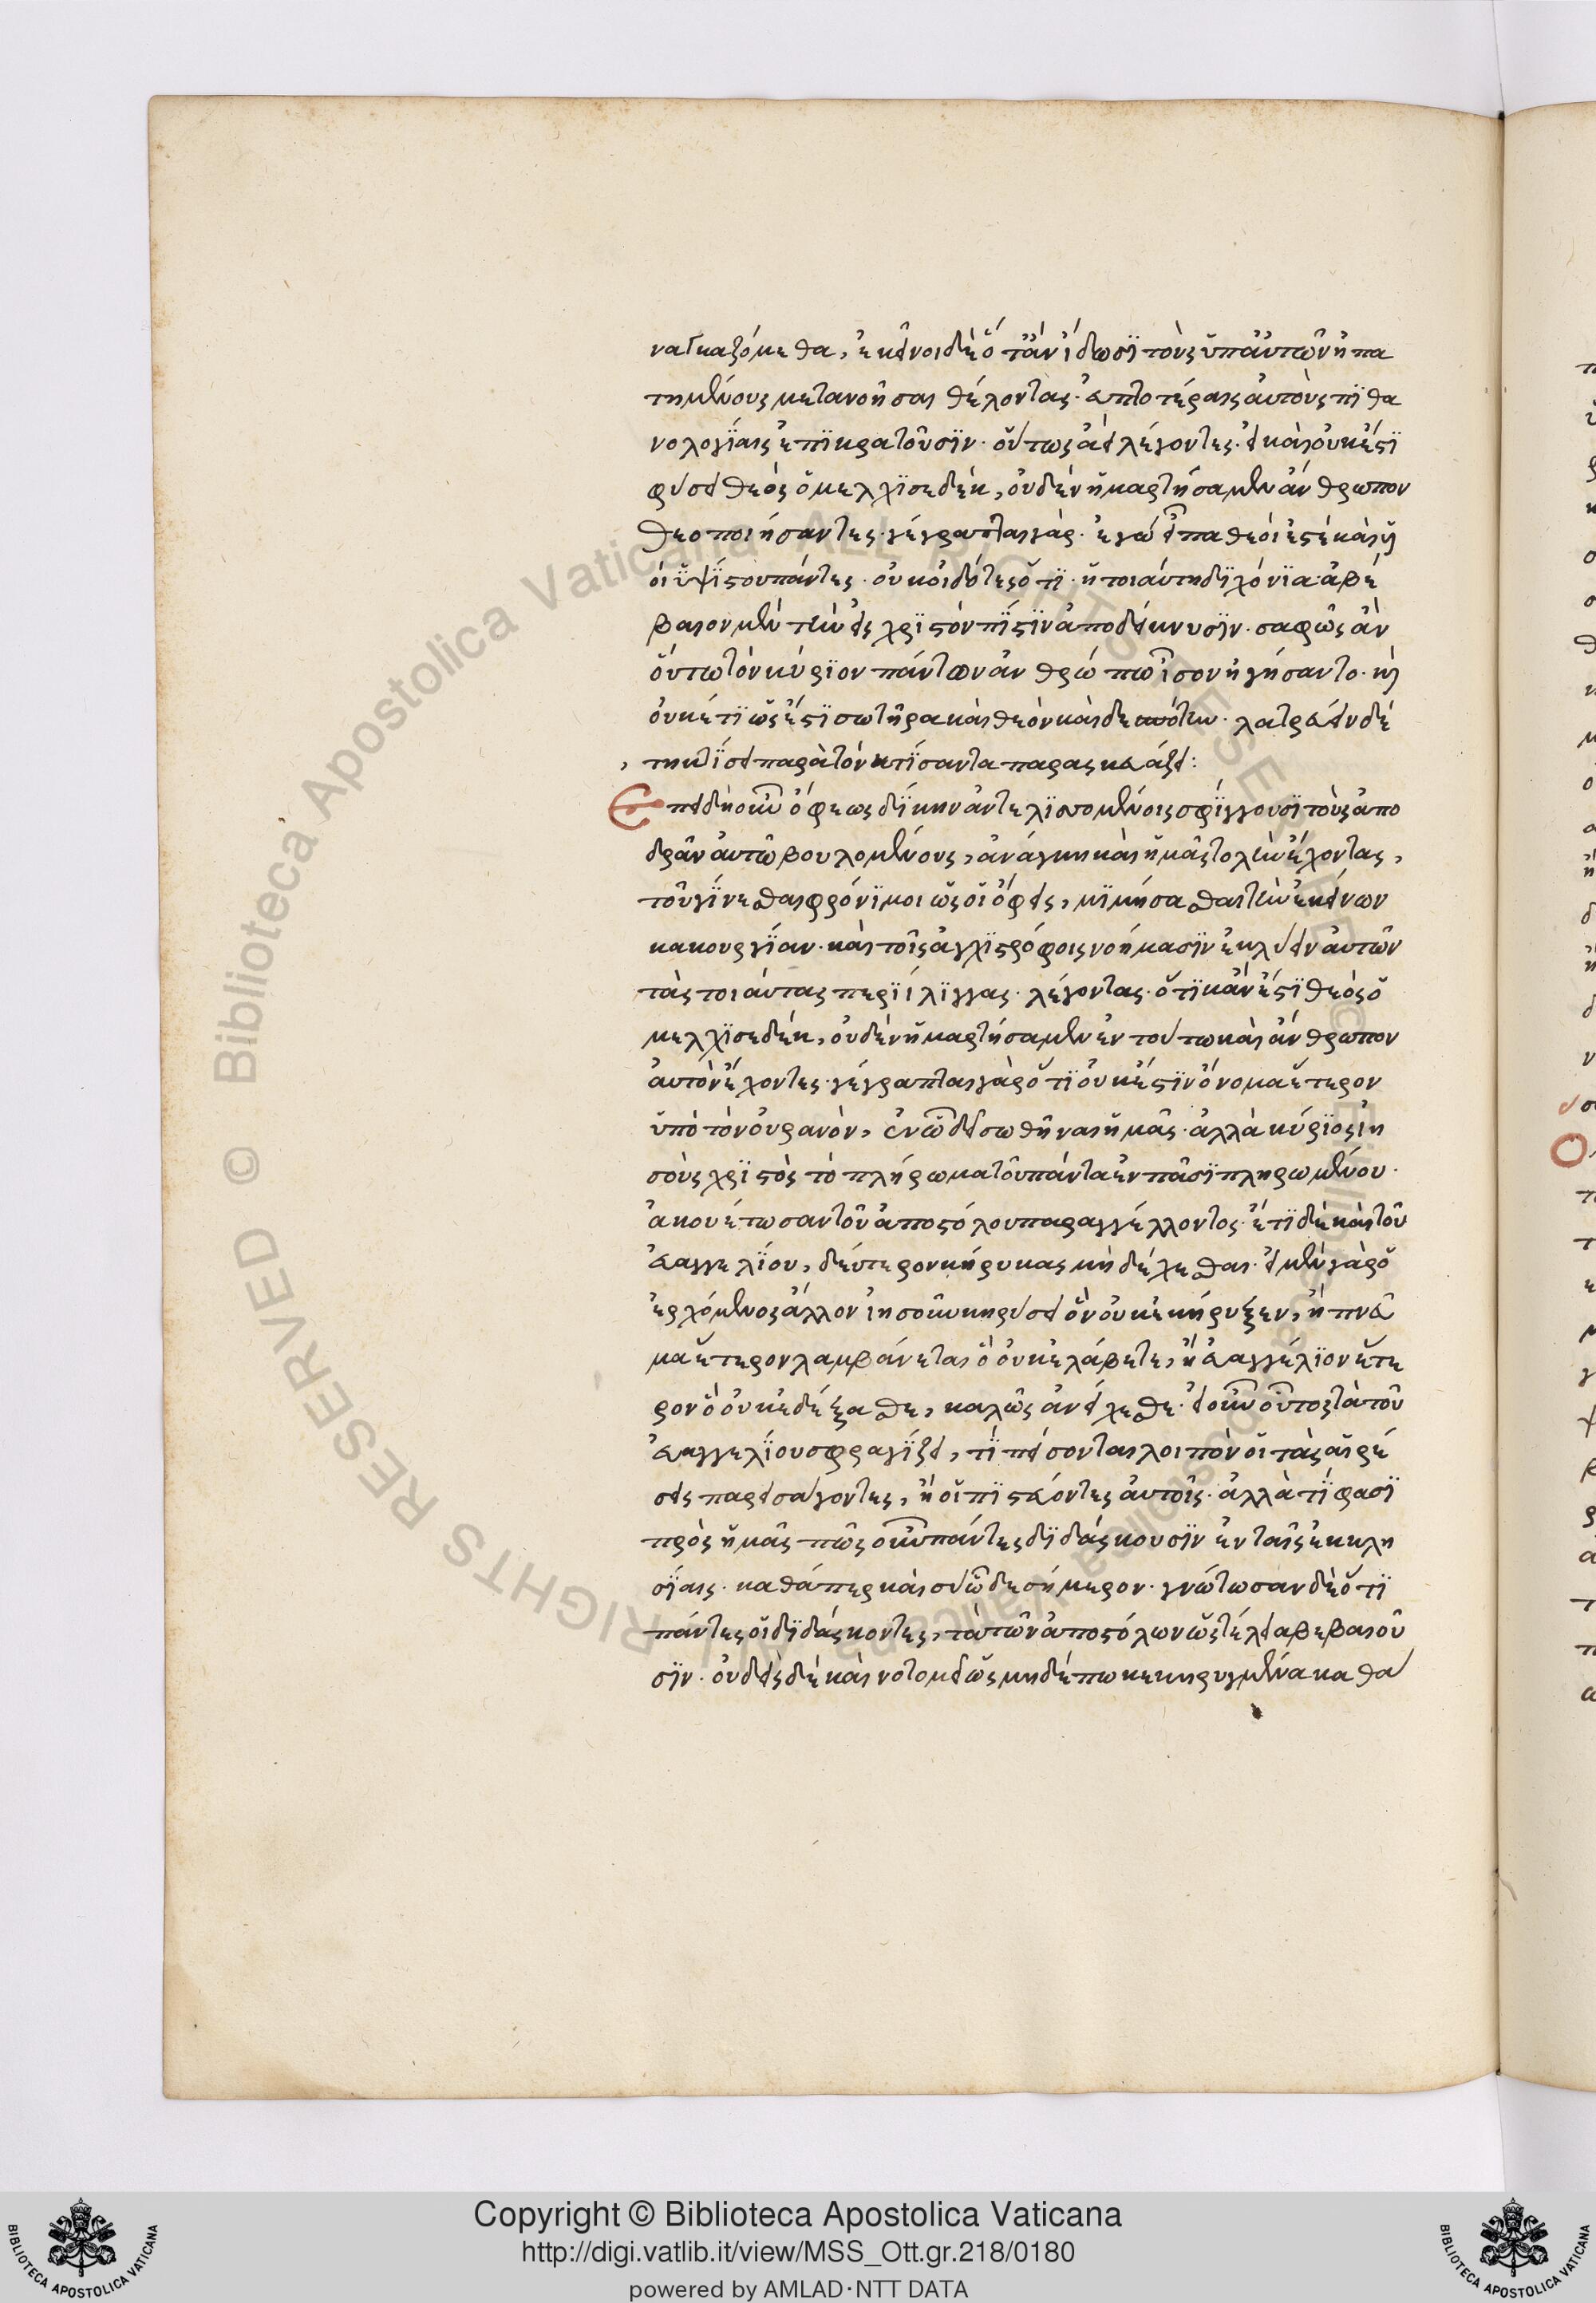 ναγκαζόμεθα, ἐκεῖνοι δὲ ὅτ' ἂν ἴδωσϊ τοὺς ὑπ' ἀυτῶν ἠπα
τημένους μετανοῆσαι θέλοντας. εὐτοτέραις ἀυτοὺς πϊθα
νολογΐαις ἐπϊκρατοῦσϊν. οὕτως ἀεὶ λέγοντες. εἰ καὶ οὐκ ἔστϊ
φύσει θεὸς ὁ μελχϊσεδὲκ, οὐδὲν ἡμαρτήσαμεν ἄνθρωπον
θεοποιήσαντες. γέγραπται γὰρ. ἐγὼ εἶπα θεοί ἐστέ καὶ ὑ
οἱ ὑψΐστου πάντες. οὐκ οἰδότες ὅτϊ. ἡ τοιάυτη δϊχόνϊα ἀβέ
βαιον μὲν τὴν εἰς χρϊστὸν πΐστϊν ἀποδείκνυσϊν. σαφῶς ἂν
οὕτω τὸν κύρϊον πάντων ἀνθρώπων ἶσον ἡγήσαντο. καὶ
ὀυκέτϊ ὥς ἐστϊ σωτῆρα καὶ θεὸν καὶ δεσπότην. λατρεύειν δέ
τῆ κτΐσει παρὰ τὸν κτΐσαντα παρασκευάζει:
Επειδὴ οὖν ὄφεως δΐκην ἀντελϊσσομένοις σφΐγγουσϊ τοὺς ἀπο
δρᾶν ἀυτῶ βουλομένους, ἀνάγκη καὶ ἡμᾶς τολὴν ἔχοντας,
τοῦ γΐνεσθαι φρόνϊμοι ὡς οἱ ὄφεις, μϊμήσασθαι τὴν ἐκείνων
κακουργΐαν. καὶ τοῖς ἀγχϊστρόφοις νοήμασϊν ἐκλύειν ἀυτῶν
τὰς τοιάυτας περϊίλϊγγας. λέγοντας. ὅτϊ κἂν ἔστϊ θεὸς ὁ
μελχϊσεδὲκ, οὐδὲν ἡμαρτήσαμεν ἐν τούτω καὶ ἄνθρωπον
ἀυτὸν ἔχοντες. γέγραπται γὰρ ὅτϊ οὐκ ἔστϊν ὄνομα ἕτερον
ὑπὸ τὸν οὐρανὸν, ἐν ὧ δεῖ σωθῆναι ἡμᾶς. ἀλλὰ κύρϊος ἰη
σοὺς χρϊστὸς τὸ πλήρωμα τοῦ πάντα ἐν πᾶσϊ πληρωμένου.
ἀκουέτωσαν τοῦ ἀποστόλου παραγγέλλοντος. ἔτϊ δὲ καὶ τοῦ
ἐυαγγελΐου, δέυτερον κήρυκας μὴ δέχεσθαι. εἰ μὲν γὰρ ὁ
ἐρχόμενος ἄλλον ἰησοῦν κηρύσει ὃν οὐκ ἐκήρυξεν, ἢ πνεῦ
μα ἕτερον λαμβάνεται ὃ οὐκ ἐλάβετε, ἢ ἐυαγγέλϊον ἕτε
ρον ὃ οὐκ ἐδέξασθε, καλῶς ἀνείχεσθε. εἰ οὖν οὗτος τὰ τοῦ
ἐυαγγελΐου σφραγΐζει, τΐ πείσονται λοιπὸν οἱ τὰς αἱρέ
σεις παρεισάγοντες, ἢ οἱ πϊστεύοντες ἀυτοῖς. ἀλλὰ τΐ φασϊ
πρὸς ἡμᾶς πῶς οὖν πάντες δϊδάσκουσϊν ἐν ταῖς ἐκκλη
σΐαις. καθάπερ καὶ σὺ ὧδε σήμερον. γνώτωσαν δὲ ὅτϊ
πάντες οἱ δϊδάσκοντες, τὰ τῶν ἀποστόλων ὡς τέλεια βεβαιοῦ
σϊν. οὐδεὶς δὲ καινοτομεῖ ὡς μηδέπω κεκηρυγμένα καθα